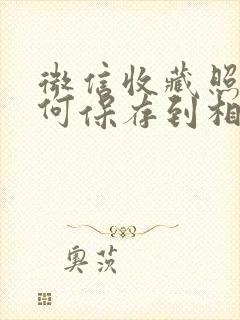 微信收藏照
何保存到相
奥茨